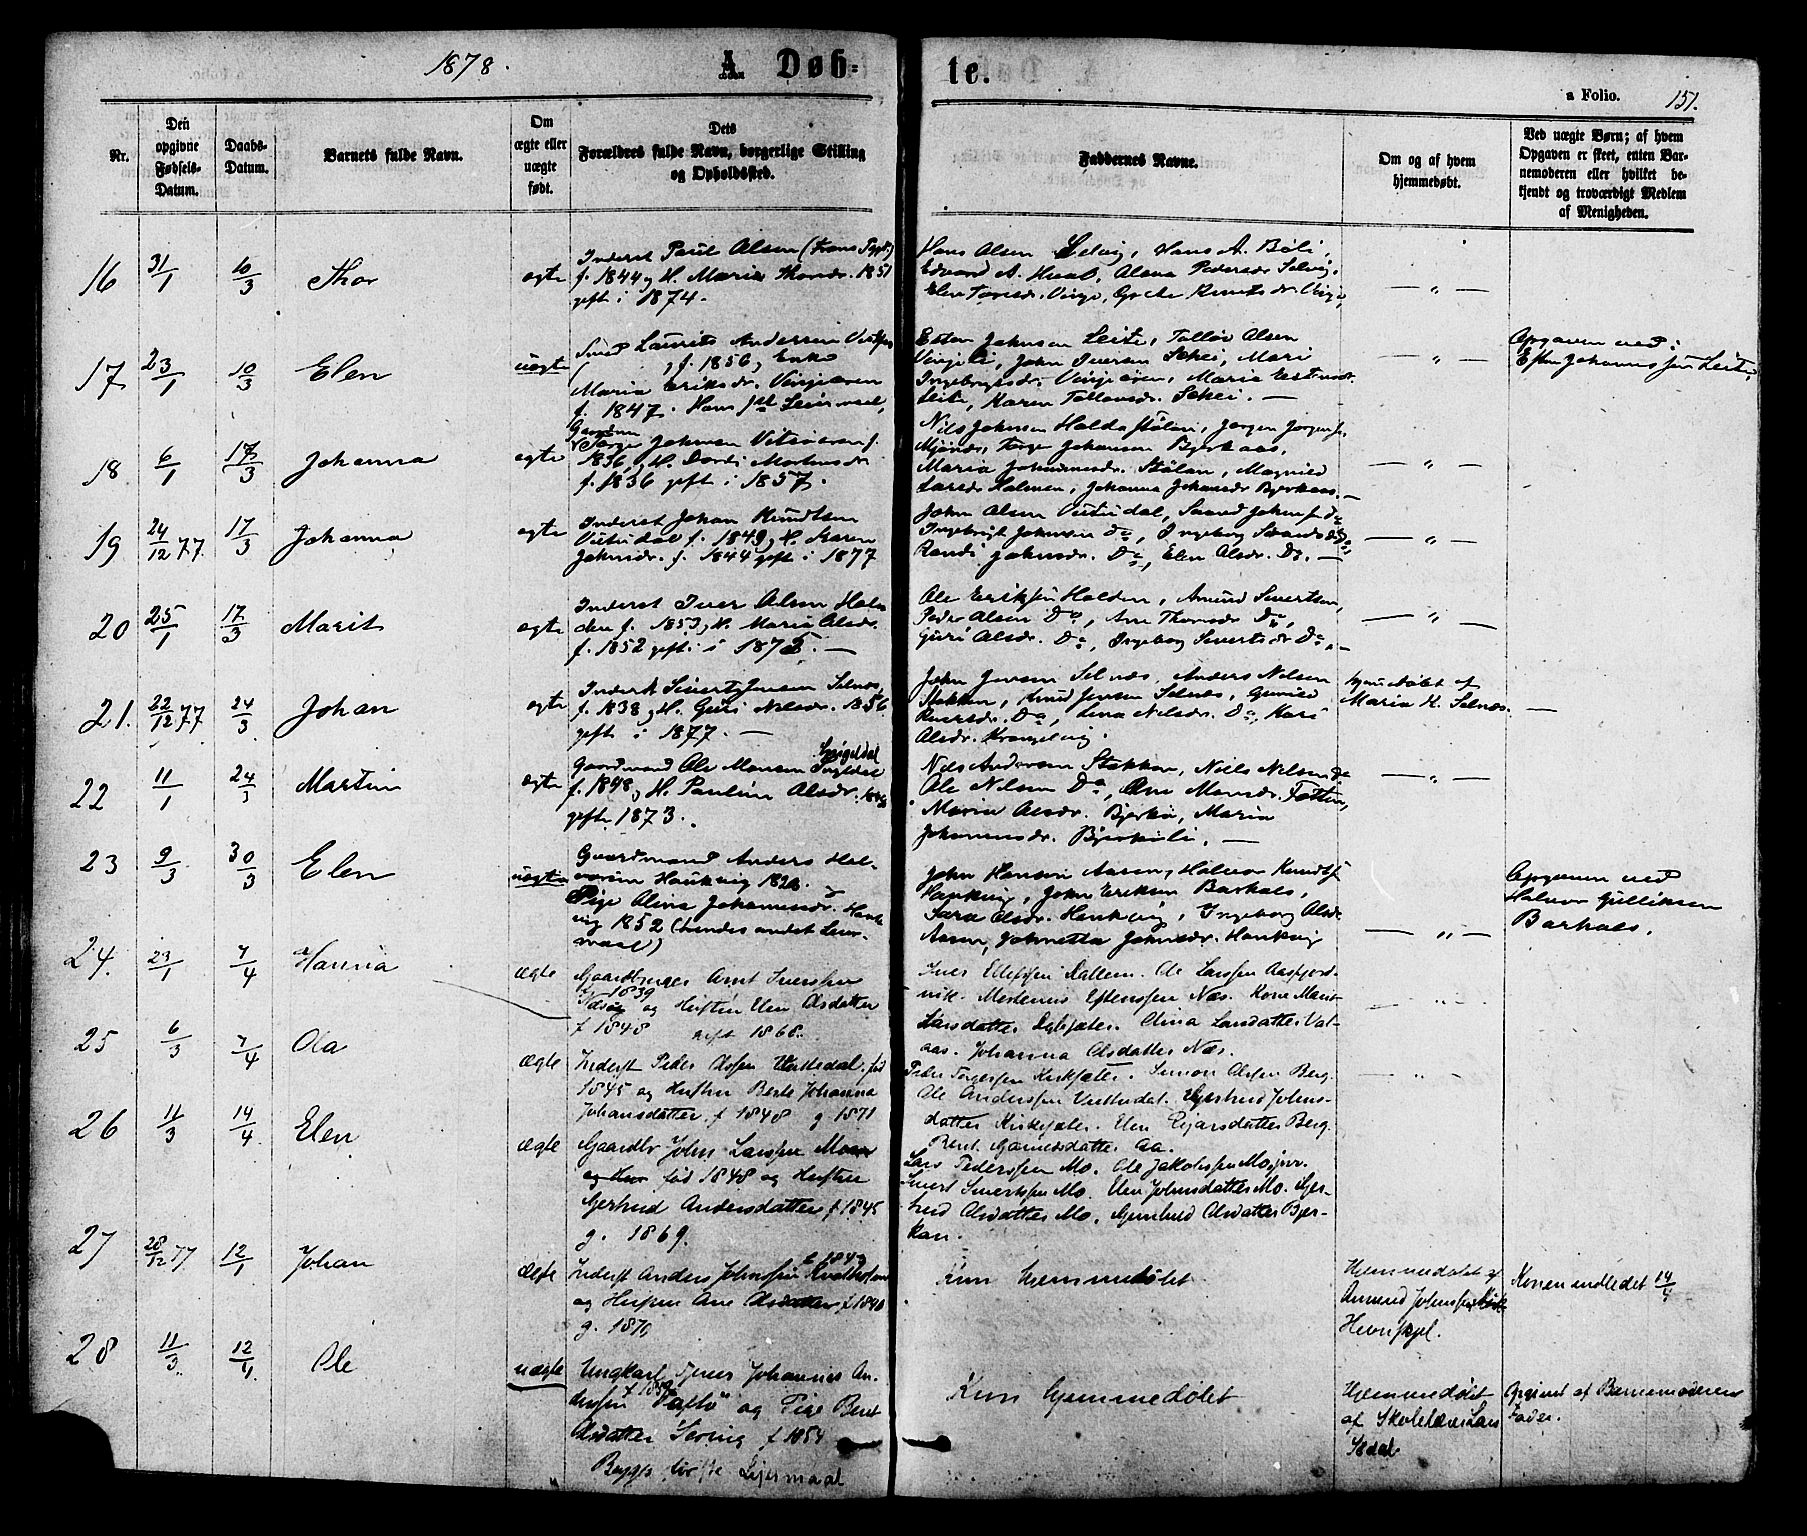 1878.
A. Døb=
te.
a Folio. 151.
Nr.
Den opgivne Fødsels-Datum.
Daabs-Datum.
Barnets fulde Navn.
Om ægte eller uægte født.
Dets Forældres fulde Navn, borgerlige Stilling og Opholdssted.
Faddernes Navne.
Om og af hvem hjemmedøbt.
Ved uægte Børn; af hvem Opgaven er skeet, enten Barnemoderen eller hvilket bekjendt og troværdigt Medlem af Menigheden.
16 31/1 10/3 Thor ægte
Inderst Paul Olsen
f. 1844 og H. Maria Thorsdr. 1851
gift i 1874.
Hans Olsen Selvig, Hans A. Bøli
Edvard A. Hual, Olena Pedersdr Selvig,
Elen Toresdr. Vinge, Grethe Knutsdr. Vinge,
— " —
17 23/1 10/3 Elen uægte
Smed Laurits Andersen
f. 1856, Enke
Maria Eriksdr. Vingeøren
f. 1847. Hans 1st Leiermaal,
Esten Johnsen Leite, Tollov Olsen
Vingeli, John Iversen Schei, Mari
Ingebrigtsdr. Vingeøren, Maria Estensdr.
Leite, Karen Tollovsdr. Schei. —
— " —
Opgaven ved:
Esten Johannessen Leite,
18 6/1 17/3 Johanna ægte
Gaardmd
Torge Johnsen Vitsøeren f.
1836, H. Dordi Mortensdr
f. 1836 gift i 1857.
Nils Johnsen Holdastølan, Jørgen Jørgens.
Mjønes, Torge Johansen Bjerkaas,
Maria Johannesdr. Stølan, Magnild
Larsdr Holmen, Johanna Johansdr Bjerkaas. —
— " —
19 24/12 77 17/3 Johanna ægte
Inderst Johan Knudtsen
Vutudal f. 1849, H. Karen
Johnsdr. f. 1844 gift i 1877
John Olsen Vutudal, Svend Johnsen do
Ingebrigt Johnsen do, Ingeborg Svendsdr do,
Randi Johnsdr. Do, Elen Olsdr. Do. —
— " —
20 25/1 17/3 Marit ægte
Inderst Iver Olsen Hol-
den f. 1853, H. Maria Olsdr.
f. 1852 gift i 1875. —
Ole Eriksen Holden, Amund Sivertsen,
Peder Olsen Do, Ane Thomsdr Do,
Guri Olsdr. Do, Ingeborg Sivertsdr Do, —
— " —
21. 22/12 77 24/3 Johan ægte
Inderst Sivert Jensen Selnes,
f. 1838, H. Guri Nilsdr. 1856
gift i 1877. —
John Jensen Selnæs, Anders Nilsen
Stokken, Knud Jensen Selnæs, Gunild
Iversdr. Do, Lena Nilsdr. Do, Kari
Olsdr. Krangelvig.
hjemdøbt af
Maria K. Selnæs. —
22 11/1 24/3 Martin ægte
Gaardmand Ole Monsen
f. 1848, H. Pauline Olsdr. 1848
gift 1873.
Nils Andersen Stokken, Niels Nilsen Do
Ole Nilsen Do, Ane Monsdr. Fætten,
Maria Olsdr. Bjerkøi, Maria
Johannesdr. Bjerkøli. —
— " —
23 9/3 30/3 Elen uægte
Gaardmand Anders Hal-
vorsen Haukvig 182. og
Pige Olina Johannesdr. Hauk-
vig 1852 (hendes andet Leier-
maal)
John Hansen Aaren, Halvor Knudts.
Haukvig, John Eriksen Barhals,
Sara Olsdr. Haukvig, Ingeborg Olsdr.
Aaren, Johnetta Johnsdr. Haukvig
— " —
Opgaven ved
Halvor Gulliksen
Barhals.
24. 23/1 7/4 Hanna ægte
Gaardbruger Arnt Iverssen
f 1839
og Hustru Elen Olsdatter
f 1848 gift 1868.
Iver Ellefssen Dallem. Ole Larssen Aasfjord-
vik. Mortenus Estenssen Næs. Kone Marit
Larsdatter. Olina Larsdatter Val-
aas. Johanna Olsdatter Næs.
25 6/3 7/4 Ola ægte
Inderst Peder Olssen Vuttudal. fød
1845 og Hustru Berte Johanna
Johansdatter f 1848 g 1871
Peder Torgerssen Kirksæter. Simon Olssen Berg.
Ole Anderssen Vuttudal. Gjertrud Johns-
datter Kirksæter. Elen Ejarsdatter Berg.
Beret Gamelsdatter Aa.
26 11/3 14/4 Elen ægte
Gaardbr John Larssen Moan
fød 1848 og Hustru
Gjertrud Andersdatter f 1845
g. 1869.
Lars Pederssen Mo. Ole Jakobssen Mo
Sivert Sivertssen Mo. Elen Johnsdatter Mo. Gjer-
trud Olsdatter Mo. Gunhild Olsdatter Bjer-
kan.
27 28/12 77 12/1 Johan ægte
f 1843
Inderst Anders Johnssen
og Hustru Ane Olsdatter f 1840
g. 1870
Kun hjemmedøbt
Hjemmedøbt af
Amund Johnssen
Hevnskjel.
Konen indledet 14/4
28 11/3 12/4 Ole uægte
Ungkarl Tjener Johannes An-
derssen og Pige Beret
Olsdatter f 1854
Begges første Lejermaal
Kun hjemmedøbt
Hjemmedøbt
af Skolelærer Lars
Ødal
Opgivet af Barnemoderens
Fader.